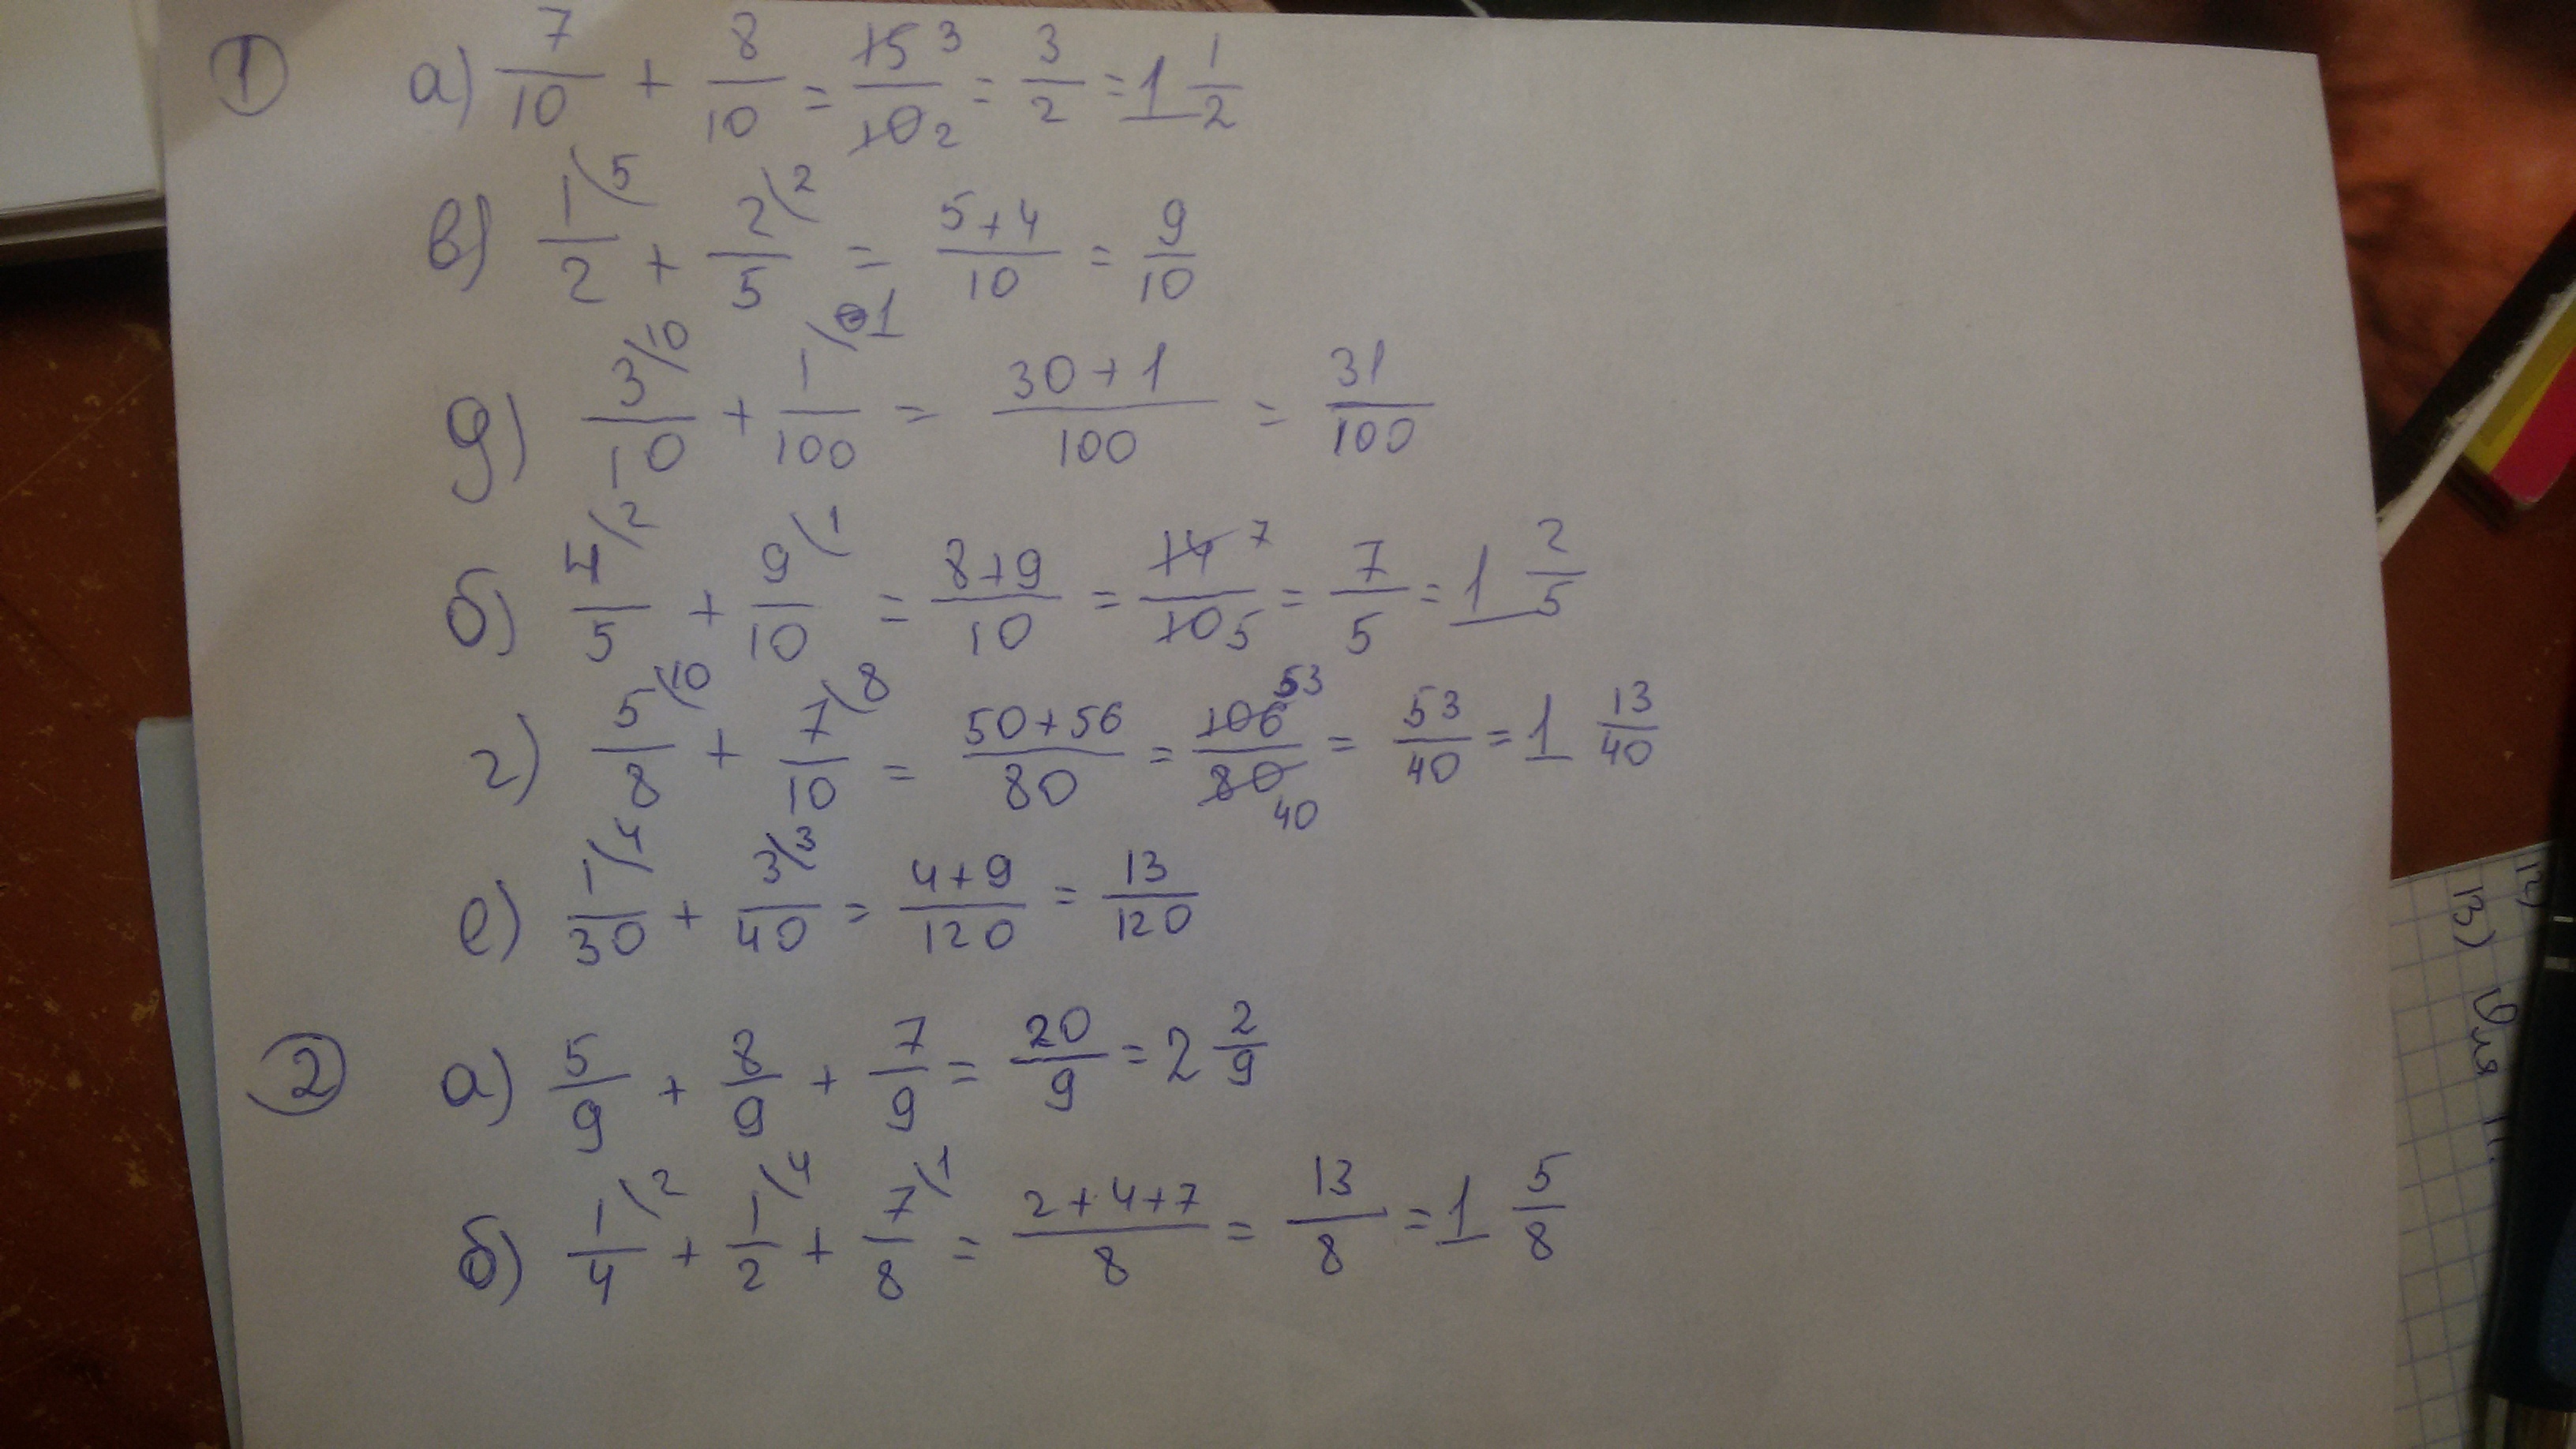 ① а) 7/10 + 8/10 = 15 3/10 2 = 3/2 = 1 1/2
в) 1\5/2 + 2\2/5 = 5+4/10 = 9/10
д) 3\10/10 + 1\1/100 = 30+1/100 = 31/100
б) 4\2/5 + 9\1/10 = 8+9/10 = 14 7/10 5 = 7/5 = 1 2/5
г) 5\10/8 + 7\8/10 = 50+56/80 = 106 53/80 40 = 53/40 = 1 13/40
е) 1\4/30 + 3\3/40 = 4+9/120 = 13/120
② а) 5/9 + 8/9 + 7/9 = 20/9 = 2 2/9
б) 1\2/4 + 1\4/2 + 7\1/8 = 2+4+7/8 = 13/8 = 1 5/8
13)